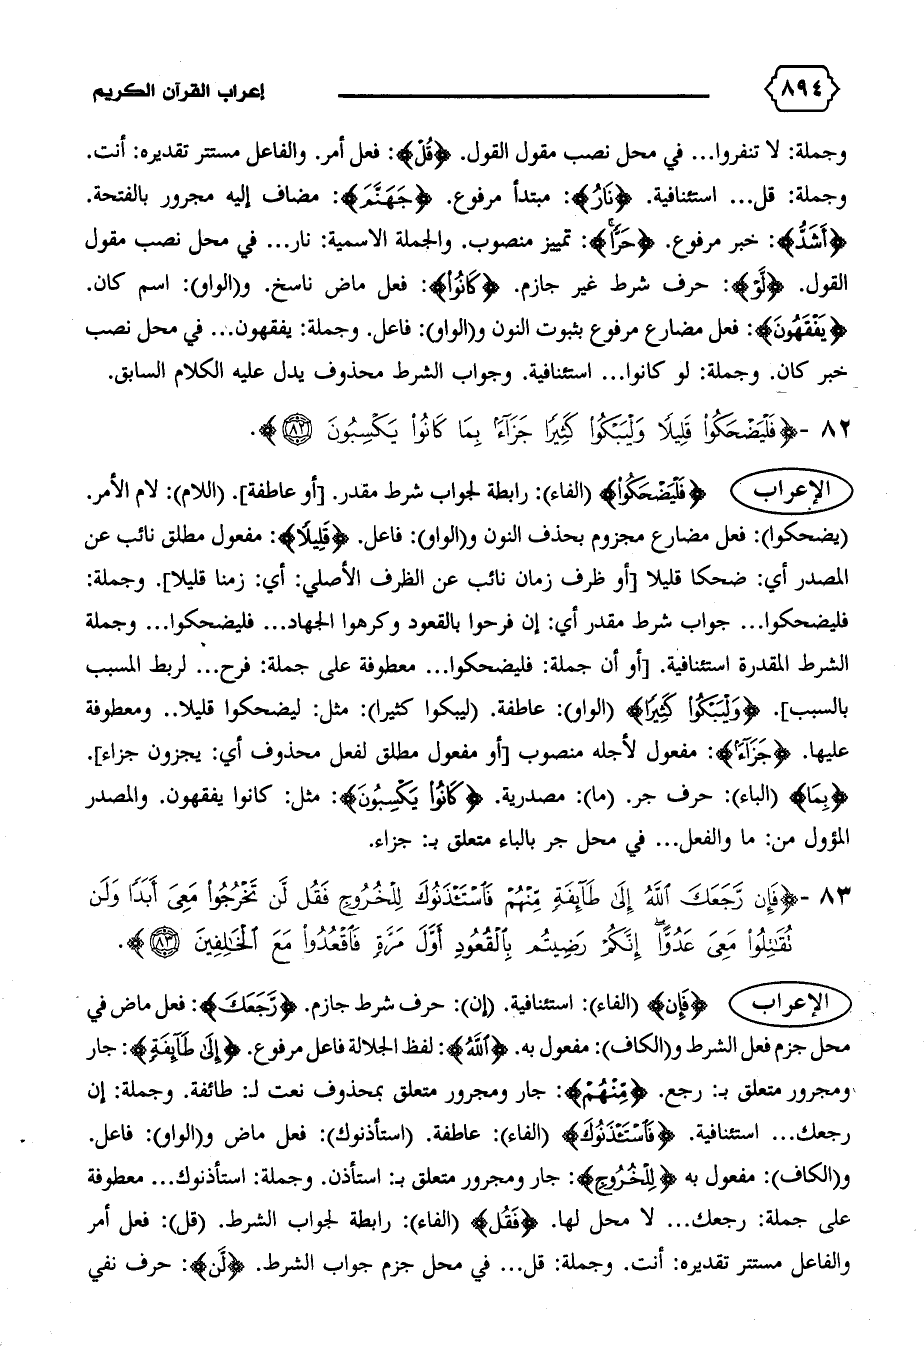 ٨٩٤ إعراب القرآن الكريم
وجملة: لا تنفروا... في محل نصب مقول القول. ﴿قُلْ﴾: فعل أمر. والفاعل مستتر تقديره: أنت.
وجملة: قل... استئنافية. ﴿نَارُ﴾: مبتدأ مرفوع. ﴿جَهَنَّمَ﴾: مضاف إليه مجرور بالفتحة.
﴿أَشَدُّ﴾: خبر مرفوع. ﴿حَرًّا﴾: تمييز منصوب. والجملة الاسمية: نار... في محل نصب مقول
القول. ﴿لَّوْ﴾: حرف شرط غير جازم. ﴿كَانُوا۟﴾: فعل ماض ناسخ. و(الواو): اسم كان.
﴿يَفْقَهُونَ﴾: فعل مضارع مرفوع بثبوت النون و(الواو): فاعل. وجملة: يفقهون... في محل نصب
خبر كان. وجملة: لو كانوا... استئنافية. وجواب الشرط محذوف يدل عليه الكلام السابق.
٨٢ -﴿فَلْيَضْحَكُوا۟ قَلِيلًا وَلْيَبْكُوا۟ كَثِيرًا جَزَآءًۢ بِمَا كَانُوا۟ يَكْسِبُونَ ٨٢﴾.
الإعراب ﴿فَلْيَضْحَكُوا۟﴾ (الفاء): رابطة لجواب شرط مقدر. [أو عاطفة]. (اللام): لام الأمر.
(يضحكوا): فعل مضارع مجزوم بحذف النون و(الواو): فاعل. ﴿قَلِيلًا﴾: مفعول مطلق نائب عن
المصدر أي: ضحكا قليلا [أو ظرف زمان نائب عن الظرف الأصلي: أي: زمنا قليلا]. وجملة:
فليضحكوا... جواب شرط مقدر أي: إن فرحوا بالقعود وكرهوا الجهاد... فليضحكوا... وجملة
الشرط المقدرة استئنافية. [أو أن جملة: فليضحكوا... معطوفة على جملة: فرح... لربط المسبب
بالسبب]. ﴿وَلْيَبْكُوا۟ كَثِيرًا﴾ (الواو): عاطفة. (ليبكوا كثيرا): مثل: ليضحكوا قليلا.. ومعطوفة
عليها. ﴿جَزَآءًۢ﴾: مفعول لأجله منصوب [أو مفعول مطلق لفعل محذوف أي: يجزون جزاء].
﴿بِمَا﴾ (الباء): حرف جر. (ما): مصدرية. ﴿كَانُوا۟ يَكْسِبُونَ﴾: مثل: كانوا يفقهون. والمصدر
المؤول من: ما والفعل... في محل جر بالباء متعلق بـ: جزاء.
٨٣ -﴿فَإِن رَّجَعَكَ ٱللَّهُ إِلَىٰ طَآئِفَةٍ مِّنْهُمْ فَٱسْتَـْٔذَنُوكَ لِلْخُرُوجِ فَقُل لَّن تَخْرُجُوا۟ مَعِىَ أَبَدًا وَلَن
تُقَـٰتِلُوا۟ مَعِىَ عَدُوًّا ۖ إِنَّكُمْ رَضِيتُم بِٱلْقُعُودِ أَوَّلَ مَرَّةٍ فَٱقْعُدُوا۟ مَعَ ٱلْخَـٰلِفِينَ ٨٣﴾.
الإعراب ﴿فَإِن﴾ (الفاء): استئنافية. (إن): حرف شرط جازم. ﴿رَّجَعَكَ﴾: فعل ماض في
محل جزم فعل الشرط و(الكاف): مفعول به. ﴿ٱللَّهُ﴾: لفظ الجلالة فاعل مرفوع. ﴿إِلَىٰ طَآئِفَةٍ﴾: جار
ومجرور متعلق بـ: رجع. ﴿مِّنْهُمْ﴾: جار ومجرور متعلق بمحذوف نعت لـ: طائفة. وجملة: إن
رجعك... استئنافية. ﴿فَٱسْتَـْٔذَنُوكَ﴾ (الفاء): عاطفة. (استأذنوك): فعل ماض و(الواو): فاعل.
و(الكاف): مفعول به ﴿لِلْخُرُوجِ﴾: جار ومجرور متعلق بـ: استأذن. وجملة: استأذنوك... معطوفة
على جملة: رجعك... لا محل لها. ﴿فَقُل﴾ (الفاء): رابطة لجواب الشرط. (قل): فعل أمر
والفاعل مستتر تقديره: أنت. وجملة: قل... في محل جزم جواب الشرط. ﴿لَّن﴾: حرف نفي